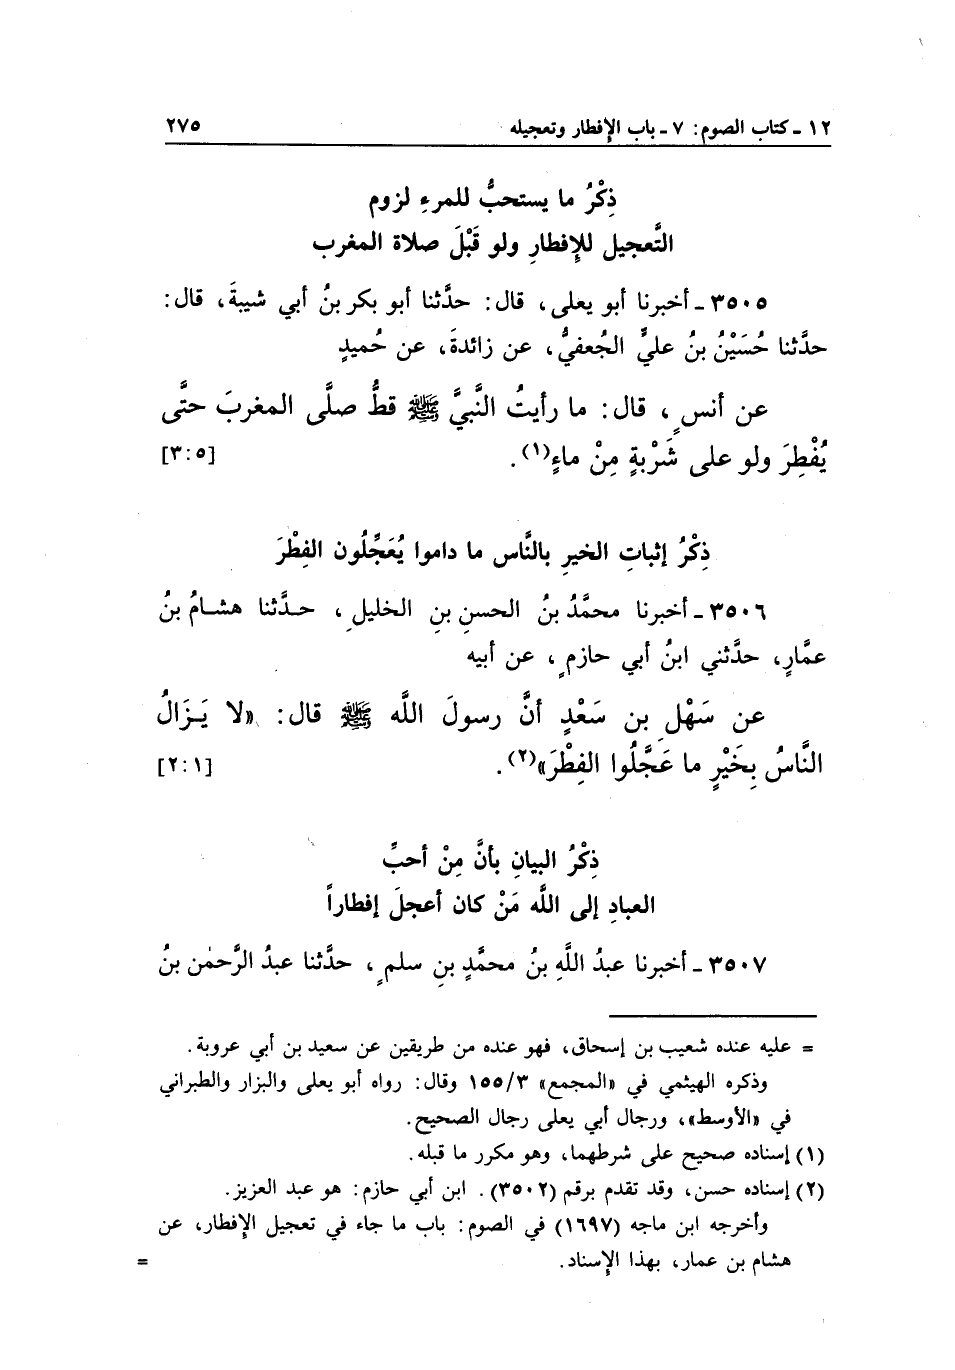 ١٢ ـ كتاب الصوم: ٧ ـ باب الإفطار وتعجيله ٢٧٥
ذِكْرُ ما يستحبُّ للمرءِ لزوم
التَّعجيل للإفطارِ ولو قَبْلَ صلاة المغرب
٣٥٠٥ ـ أخبرنا أبو يعلى، قال: حدَّثنا أبو بكر بنُ أبي شيبةَ، قال:
حدَّثنا حُسَيْنُ بنُ عليٍّ الجُعفيُّ، عن زائدةَ، عن حُميدٍ
عن أنسٍ، قال: ما رأيتُ النَّبيَّ ﷺ قطُّ صلَّى المغربَ حتَّى
يُفْطِرَ ولو على شَرْبةٍ مِنْ ماءٍ(١). [٣:٥]
ذِكْرُ إثباتِ الخيرِ بالنَّاس ما داموا يُعَجِّلُون الفِطْرَ
٣٥٠٦ ـ أخبرنا محمَّدُ بنُ الحسنِ بنِ الخليلِ، حـدَّثنا هشـامُ بنُ
عمَّارٍ، حدَّثني ابنُ أبي حازمٍ، عن أبيه
عن سَهْلِ بن سَعْدٍ أنَّ رسولَ اللَّه ﷺ قال: «لا يَـزَالُ
النَّاسُ بِخَيْرٍ ما عَجَّلُوا الفِطْرَ»(٢). [٢:١]
ذِكْرُ البيانِ بأنَّ مِنْ أحبِّ
العبادِ إلى اللَّه مَنْ كان أعجلَ إفطاراً
٣٥٠٧ ـ أخبرنا عبدُ اللَّهِ بنُ محمَّدِ بنِ سلمٍ، حدَّثنا عبدُ الرَّحمٰن بنُ
= عليه عنده شعيب بن إسحاق، فهو عنده من طريقين عن سعيد بن أبي عروبة.
وذكره الهيثمي في «المجمع» ١٥٥/٣ وقال: رواه أبو يعلى والبزار والطبراني
في «الأوسط»، ورجال أبي يعلى رجال الصحيح.
(١) إسناده صحيح على شرطهما، وهو مكرر ما قبله.
(٢) إسناده حسن، وقد تقدم برقم (٣٥٠٢). ابن أبي حازم: هو عبد العزيز.
وأخرجه ابن ماجه (١٦٩٧) في الصوم: باب ما جاء في تعجيل الإفطار، عن
هشام بن عمار، بهذا الإسناد. =